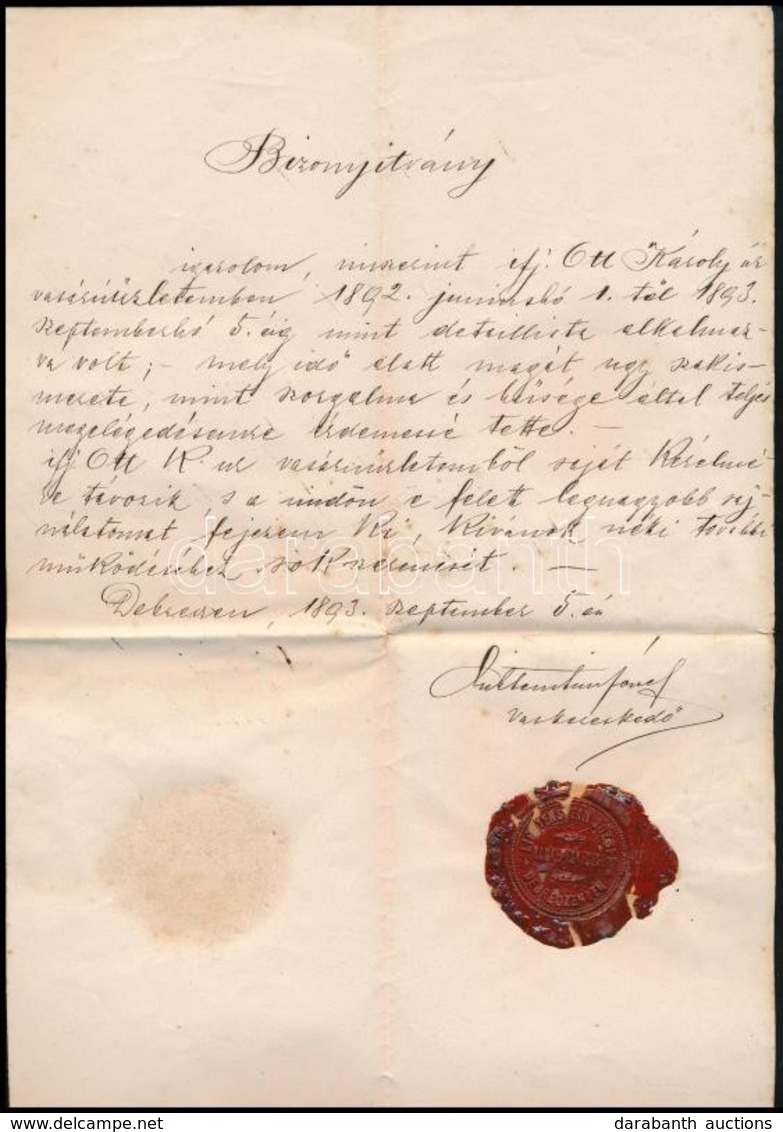 Bizonyitvány
igazolom, miszerint ifj. Ott Károly úr
vasárúüzletemben 1892. juniushó 1. től 1893.
szeptemberhó 5. éig mint detaillista alkalmaz-
va volt; – mely idő alatt magát ugy szakis-
merete, mint szorgalma és hűsége által teljes
megelégedésemre érdemessé tette. –
ifj Ott K. ur vasárúüzletemből saját kérelmé-
re távozik, s a midőn e felett legnagyobb saj-
nálatomat fejezem ki, kívánok néki további
működéséhez sok szerencsét. –
Debreczen, 1893. szeptember 5. én
József
vaskereskedő
DEBRECZENBEN
darabanth
darabanth auctions